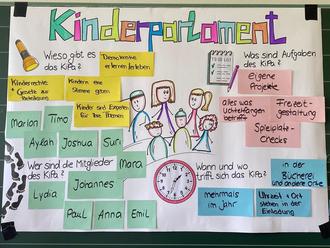 Kinderparlament
Wieso gibt es
das KiPa?
Demokratie
erlernen/erleben
Kinderrechte
+ Gesetze zur
Beteiligung
Kindern eine
Stimme geben
Kinder sind Experten
für ihre Themen
TO DO LIST
Was sind Aufgaben
des KiPa?
eigene
Projekte
alles was
Luchtefangen
betrifft
Freizeit-
gestaltung
Spielplatz-
Checks
Marlon
Timo
Aydah
Joshua
Suri
Mara
Wer sind die Mitglieder
des KiPa?
Johannes
Lydia
Paul
Anna
Emil
Wann und wo
trifft sich das KiPa?
in der
Bücherei
und andere Orte
mehrmals
im Jahr
Uhrzeit + Ort
stehen in der
Einladung